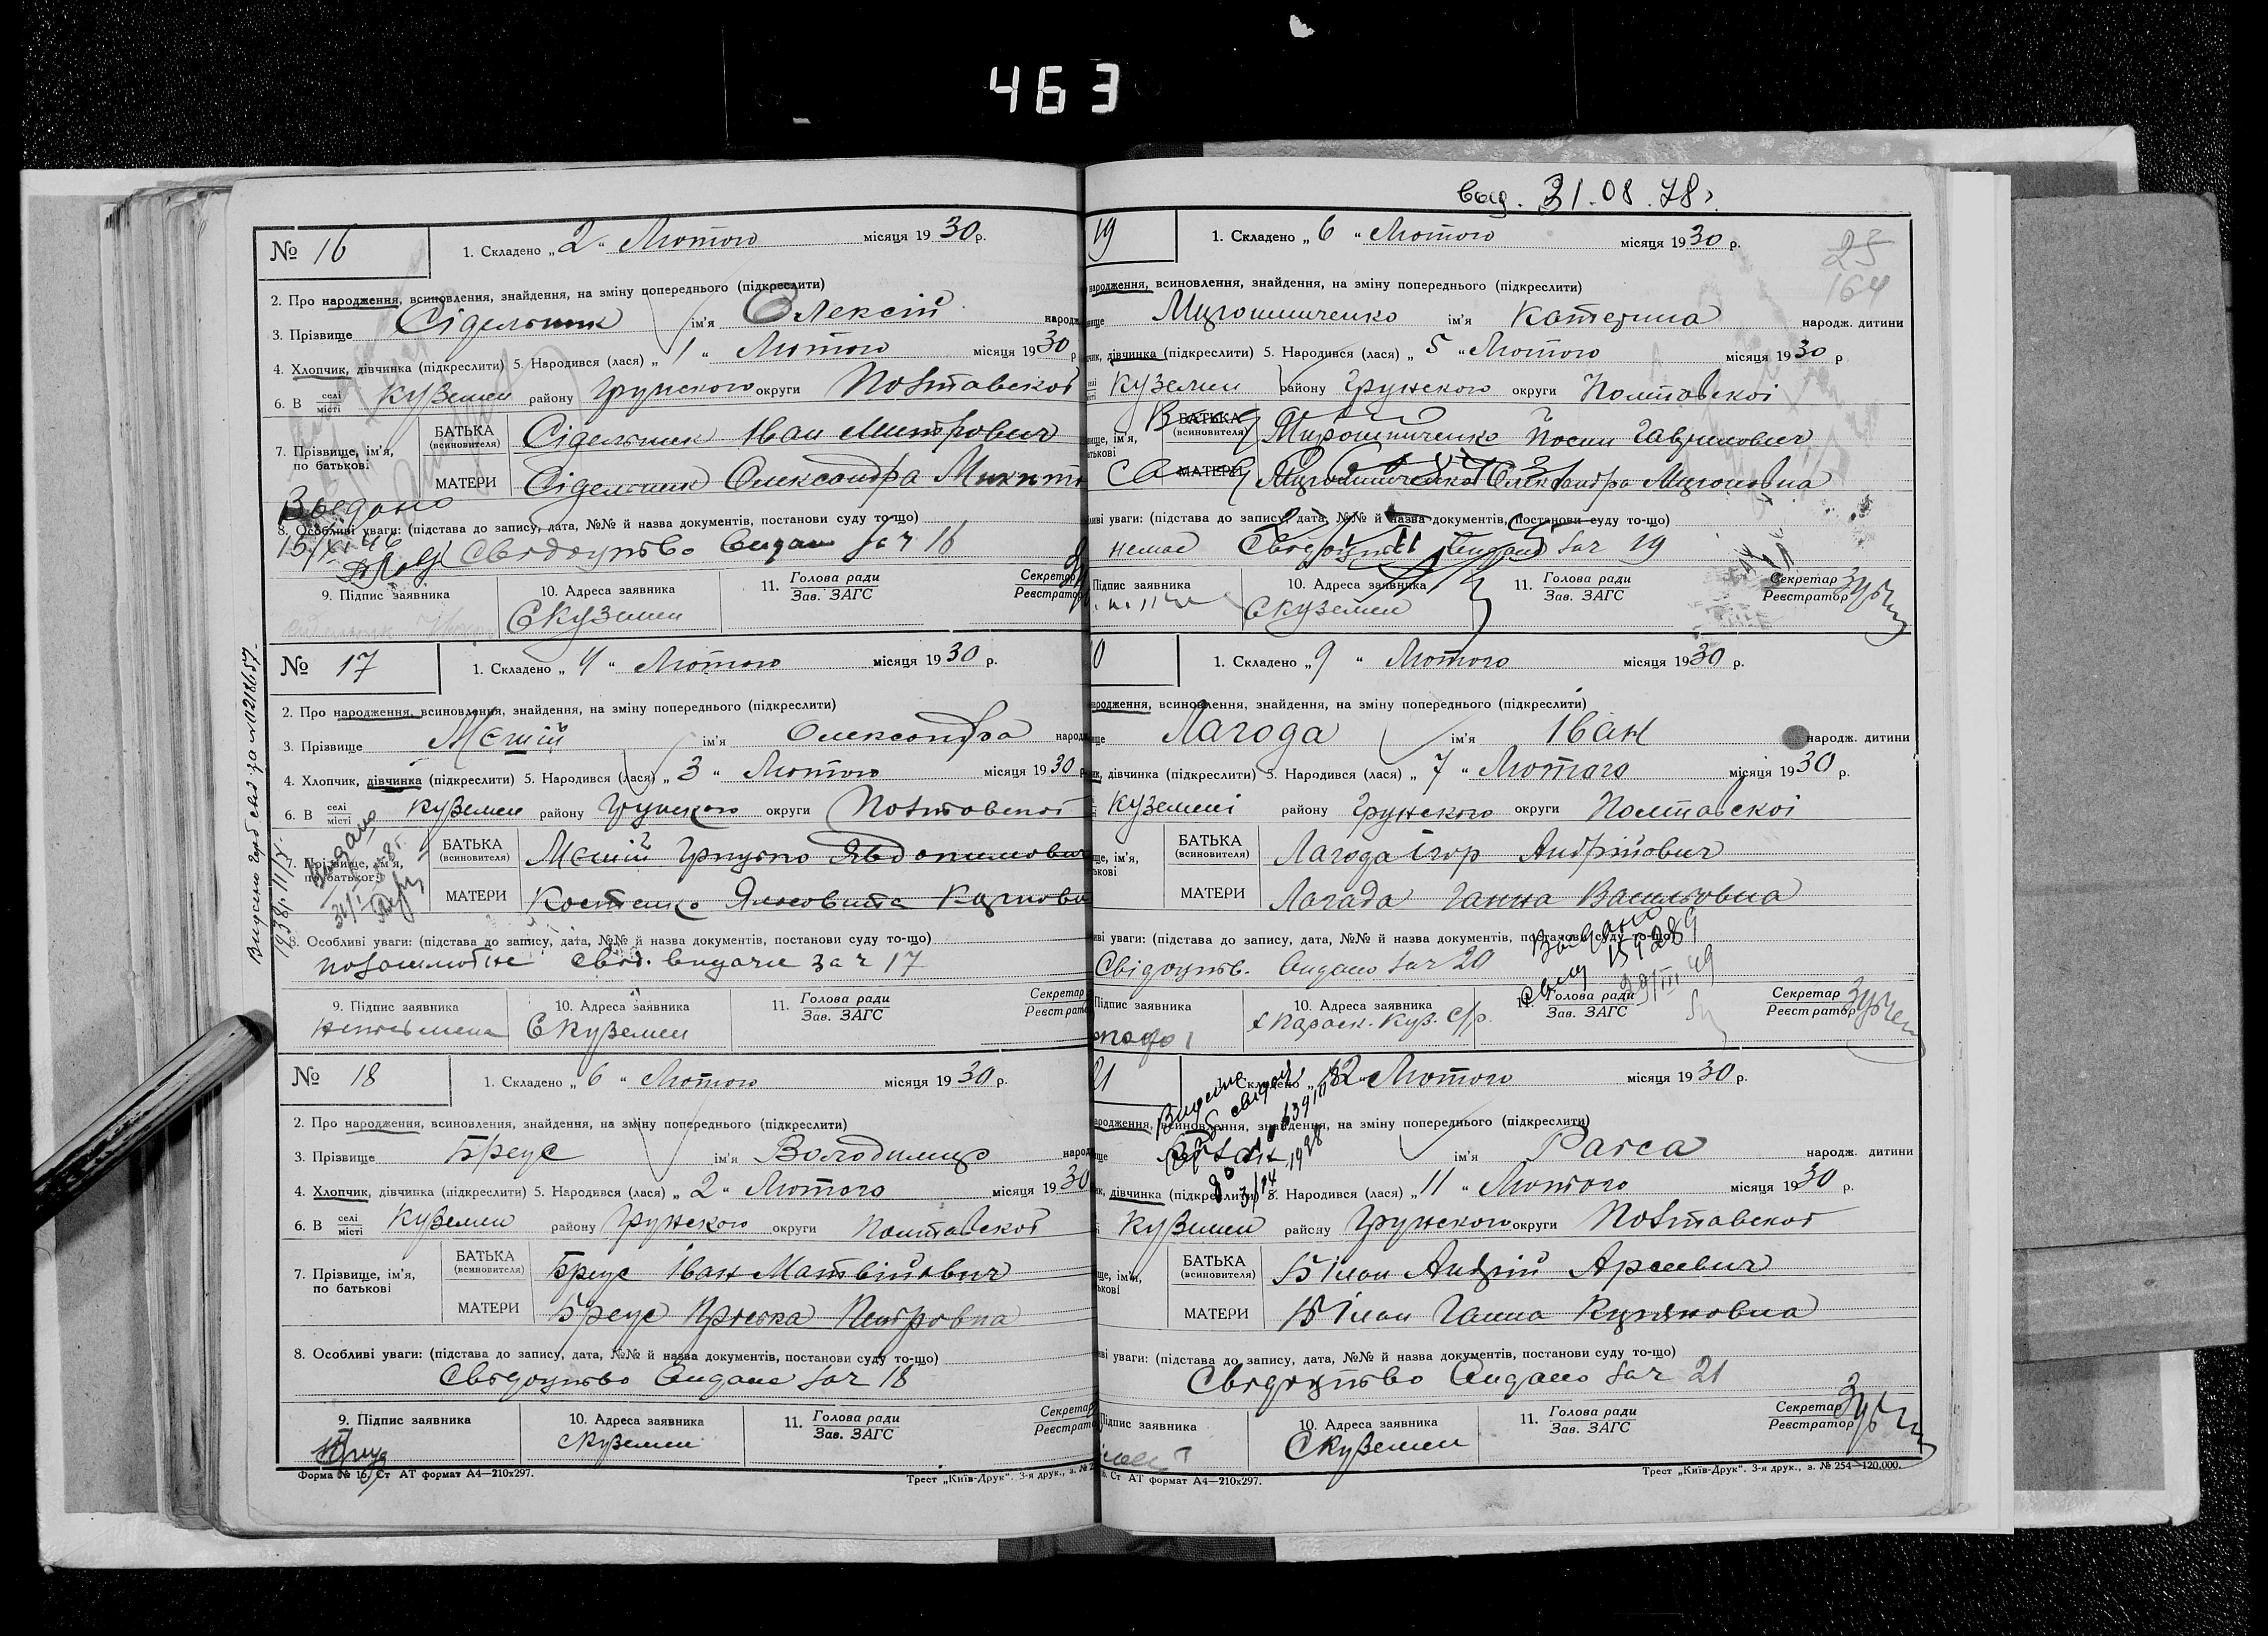 463
№ 16
1. Складено „ 2 " Лютого місяця 19 30 р.
2. Про народження, всиновлення, знайдення, на зміну попереднього (підкреслити)
3. Прізвище Сідельник ім'я Олексій народж
4. Хлопчик, дівчинка (підкреслити) 5. Народився (лася) „ 1 " Лютого місяця 19 30 р
6. В селі місті Куземен району Грунского округи Полтавскої
7. Прізвище, ім'я, по батькові
БАТЬКА (всиновителя) Сідельник Іван Митрович
МАТЕРИ Сідельник Олександра Микит
Выдано
8. Особливі уваги: (підстава до запису, дата, №№ й назва документів, постанови суду то-що)
15/XI 46 Свідоцтво видано за ч 16
9. Підпис заявника
10. Адреса заявника
С Куземен
11. Голова ради Зав. ЗАГС
Секретар Реєстратор
№ 17
1. Складено „ 4 " Лютого місяця 19 30 р.
2. Про народження, всиновлення, знайдення, на зміну попереднього (підкреслити)
3. Прізвище ім'я Олександра народж
4. Хлопчик, дівчинка (підкреслити) 5. Народився (лася) „ 3 " Лютого місяця 19 30 р
6. В селі місті Куземен району Грунского округи Полтавскої
7. Прізвище, ім'я, по батькові
Видано
БАТЬКА (всиновителя) Грицько Явдокимович
МАТЕРИ Костенко
8. Особливі уваги: (підстава до запису, дата, №№ й назва документів, постанови суду то-що)
свід. видане за ч 17
9. Підпис заявника
неписьмена
10. Адреса заявника
С Куземен
11. Голова ради Зав. ЗАГС
Секретар Реєстратор
№ 18
1. Складено „ 6 " Лютого місяця 19 30 р.
2. Про народження, всиновлення, знайдення, на зміну попереднього (підкреслити)
3. Прізвище Бреус ім'я Володимир народ
4. Хлопчик, дівчинка (підкреслити) 5. Народився (лася) „ 2 " Лютого місяця 19 30
6. В селі місті Куземен району Грунского округи Полтавскої
7. Прізвище, ім'я, по батькові
БАТЬКА (всиновителя) Бреус Іван Матвійович
МАТЕРИ Бреус Пріська Петровна
8. Особливі уваги: (підстава до запису, дата, №№ й назва документів, постанови суду то-що)
Свідоцтво видане за ч 18
9. Підпис заявника
10. Адреса заявника
с Куземен
11. Голова ради Зав. ЗАГС
Секретар Реєстратор
Форма № 16, Ст АТ формат А4—210х297.
Трест „Київ-Друк". 3-я друк., з. № 2
выд. 31.08.78г.
19
1. Складено „ 6 " Лютого місяця 19 30 р.
23
164
народження, всиновлення, знайдення, на зміну попереднього (підкреслити)
Мирошниченко ім'я Катерина народж. дитини
дівчинка (підкреслити) 5. Народився (лася) „ 5 " Лютого місяця 19 30 р
Куземен району Грунского округи Полтавскої
БАТЬКА (всиновителя) Мирошниченко Йосип Гаврилович
МАТЕРИ Мирошниченко Олександра Мироновна
уваги: (підстава до запису, дата, №№ й назва документів, постанови суду то-що)
немає Свідоцтво видано за ч 19
Підпис заявника
10. Адреса заявника
С Куземен
11. Голова ради Зав. ЗАГС
Секретар Реєстратор
0
1. Складено „ 9 " Лютого місяця 19 30 р.
народження, всиновлення, знайдення, на зміну попереднього (підкреслити)
Лагода ім'я Іван народж. дитини
дівчинка (підкреслити) 5. Народився (лася) „ 7 " Лютого місяця 19 30 р.
Куземені району Грунского округи Полтавскої
БАТЬКА (всиновителя) Лагода Ігор Андрійович
МАТЕРИ Лагада Ганна Васильовна
уваги: (підстава до запису, дата, №№ й назва документів, постанови суду то-що)
Свідоцтв. видано за ч 20
Выдано
29/III 49
Підпис заявника
10. Адреса заявника
11. Голова ради Зав. ЗАГС
Секретар Реєстратор
21
Складено „ 12 " Лютого місяця 19 30 р.
народження, всиновлення, знайдення, на зміну попереднього (підкреслити)
ім'я Раїса народж. дитини
дівчинка (підкреслити) 5. Народився (лася) „ 11 " Лютого місяця 19 30 р.
Куземен району Грунского округи Полтавскої
БАТЬКА (всиновителя) Білан Андрій
МАТЕРИ Білан Ганна
уваги: (підстава до запису, дата, №№ й назва документів, постанови суду то-що)
Свідоцтво видано за ч 21
Підпис заявника
10. Адреса заявника
С Куземен
11. Голова ради Зав. ЗАГС
Секретар Реєстратор
Ст АТ формат А4—210х297.
Трест „Київ-Друк". 3-я друк., з. № 254—120.000.